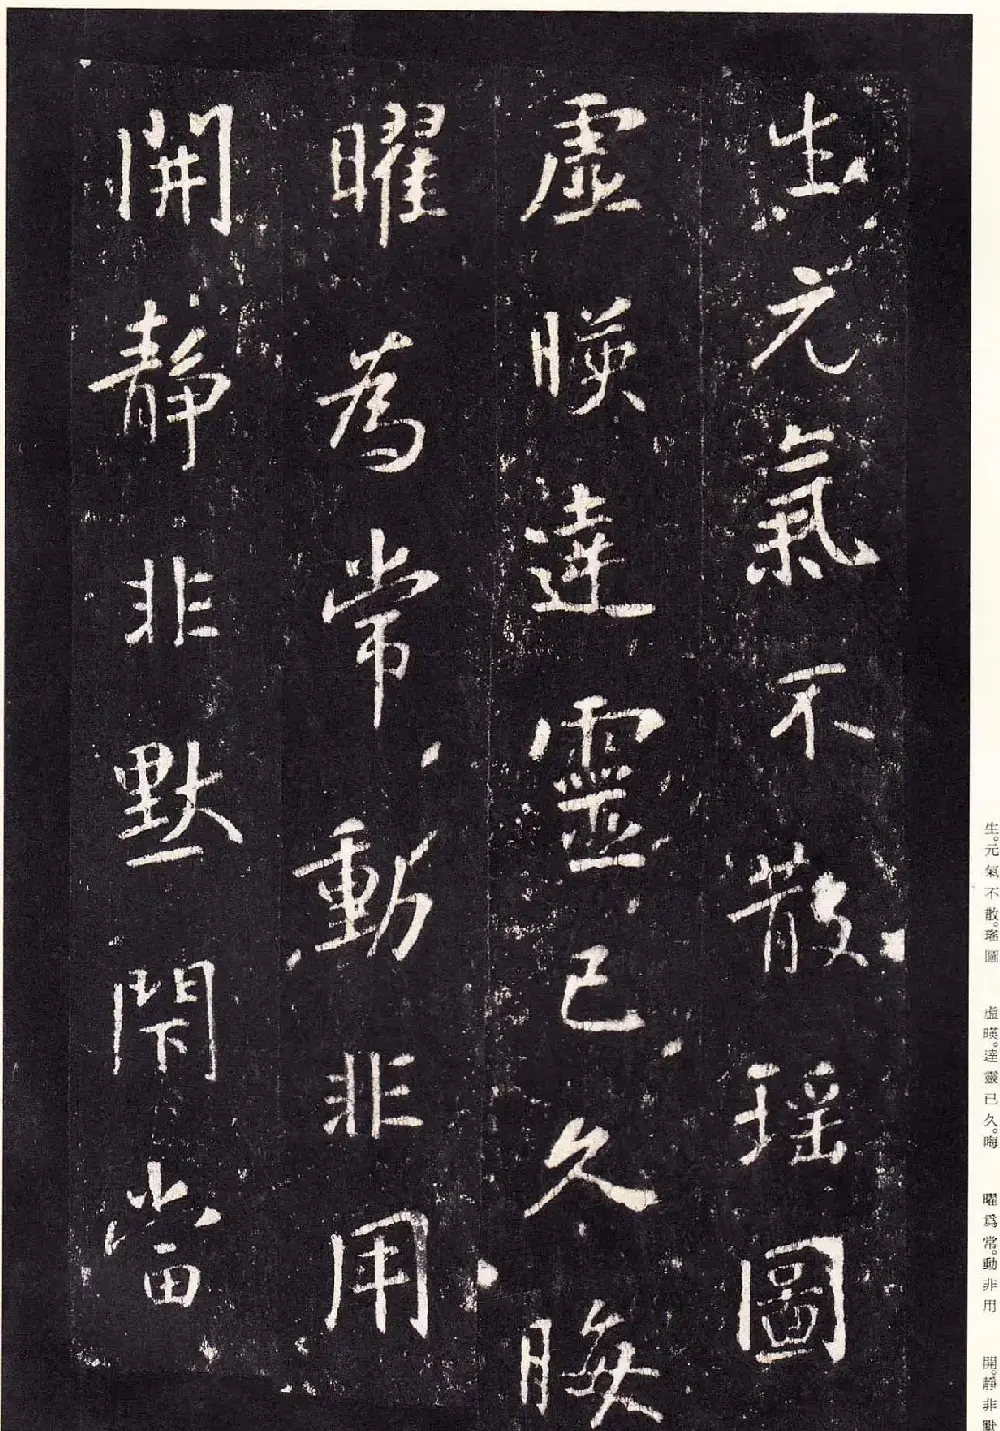 生元氣不散瑶圖
虛暎達靈已久晦
曜為常動非用
開靜非默閇當
生。元氣不散。瑤圖
虛暎。達靈已久。晦
曜爲常。動非用
開。靜非默